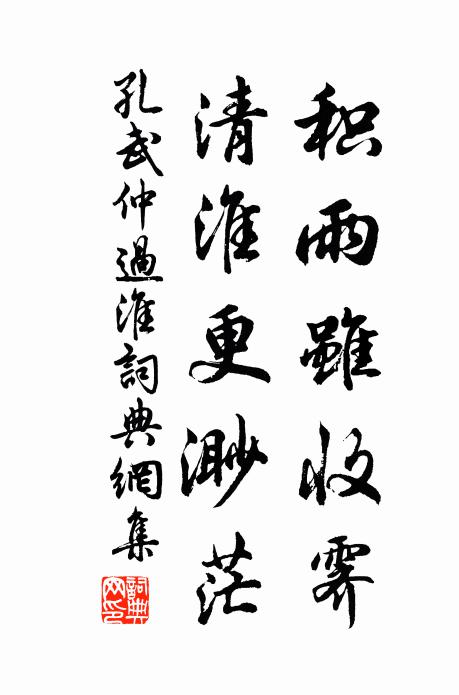 积雨雖收霁
清淮更渺茫
孔武仲過淮詞典網集
詞典
网印